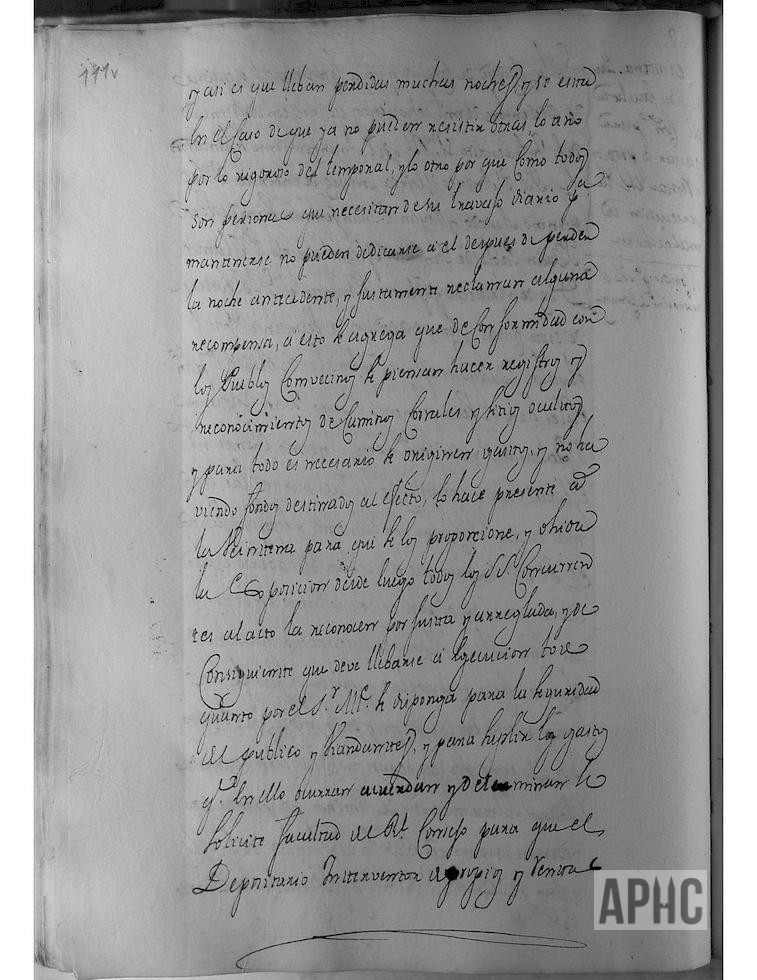 111v
y asi es que lleban perdidas muchas noches, y se esta
En el Caso de que ya no pueden resistir otras, lo uno
por lo rigoroso del temporal, y lo otro por que Como todos
son personas que necesitan de su travajo diario pa
mantenerse no pueden dedicarse a el despues de perder
la noche antecedente, y justamente reclaman alguna
recompensa, a esto se agrega que de Conformidad con
los Pueblos Comvecinos se piensan hacer registros y
reconocimientos de Caminos Corrales y sitios ocultos
y para todo es necesario se originen gastos, y no ha
viendo fondos destinados al efecto, lo hace presente a
la para que se los proporcione, y
la Exposicion desde luego todos los SS. Concurren
tes al acto la reconocen por justa y arreglada, y de
Consiguiente que deve llebarse a Egecucion todo
quanto por el Sr. Me. se disponga para la seguridad
del publico y Viandantes, y para suplir los gastos
qe. En ello ocurran acuerdan y determinan se
Solicite facultad del Rl. Consejo para que el
Depositario Interventor de propios y Rentas
APHC